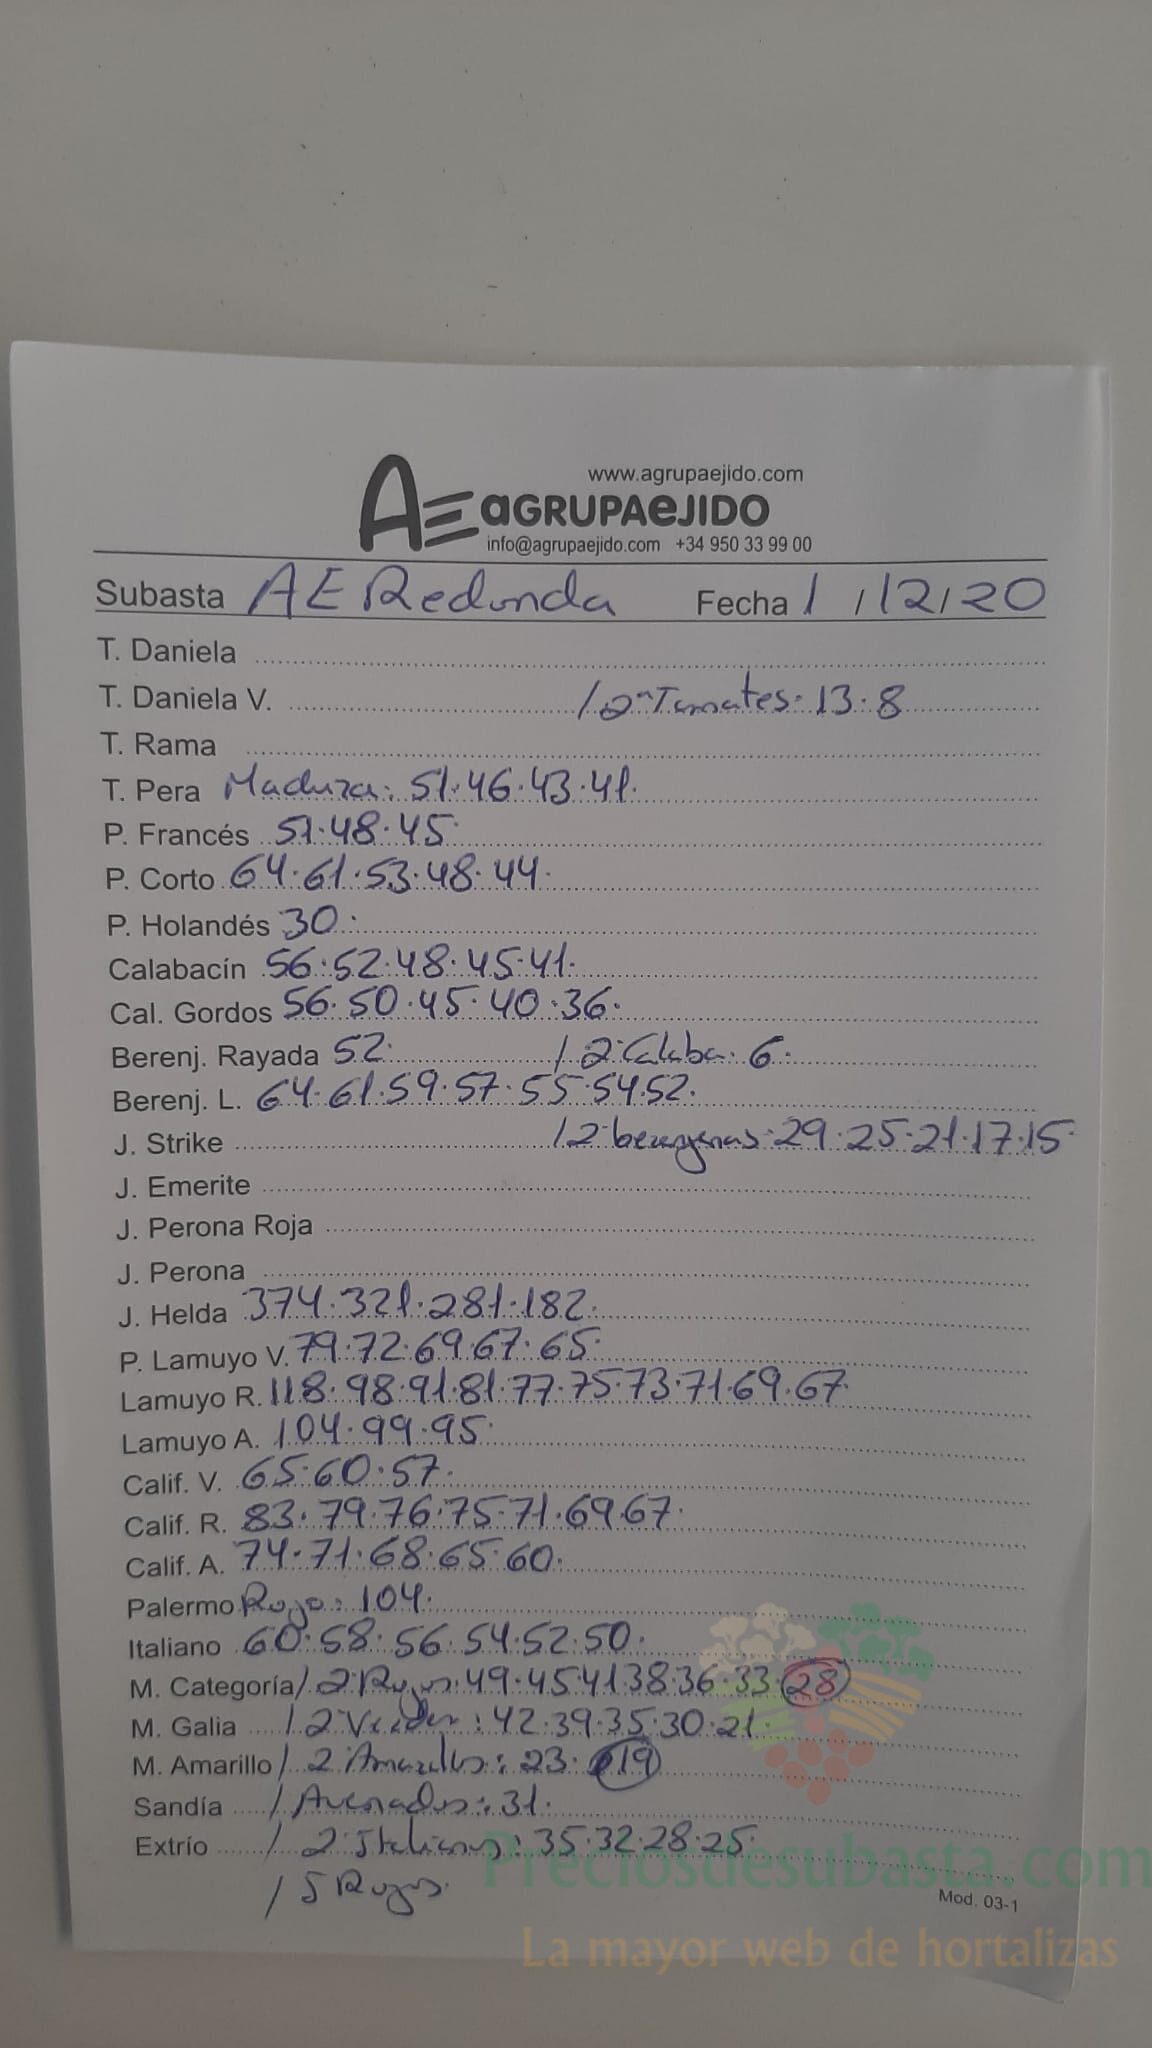 www.agrupaejido.com
AE aGRUPAeJIDO
info@agrupaejido.com +34 950 33 99 00
Subasta AE Redonda Fecha 1 / 12 / 20
T. Daniela
T. Daniela V. / 2ª Tomates. 13. 8
T. Rama
T. Pera Madura: 51.46.43.41.
P. Francés 51.48.45.
P. Corto 64.61.53.48.44.
P. Holandés 30.
Calabacín 56.52.48.45.41.
Cal. Gordos 56.50.45.40.36.
Berenj. Rayada 52. / 2 Calaba. 6.
Berenj. L. 64.61.59.57.55.54.52.
J. Strike / 2 berenjenas. 29.25.21.17.15.
J. Emerite
J. Perona Roja
J. Perona
J. Helda 374.321.281.182.
P. Lamuyo V. 79.72.69.67.65.
Lamuyo R. 118.98.91.81.77.75.73.71.69.67.
Lamuyo A. 104.99.95.
Calif. V. 65.60.57.
Calif. R. 83.79.76.75.71.69.67.
Calif. A. 74.71.68.65.60.
Palermo Rojo: 104.
Italiano 60.58.56.54.52.50.
M. Categoría / 2 Rojos. 49.45.41.38.36.33.28
M. Galia / 2 Verdes: 42.39.35.30.21.
M. Amarillo / 2 Amarillos: 23. 19
Sandía / Asurados: 31.
Extrío / 2 Italianos: 35.32.28.25.
/ 5 Rojos.
Mod. 03-1
Preciosdesubasta.com
La mayor web de hortalizas